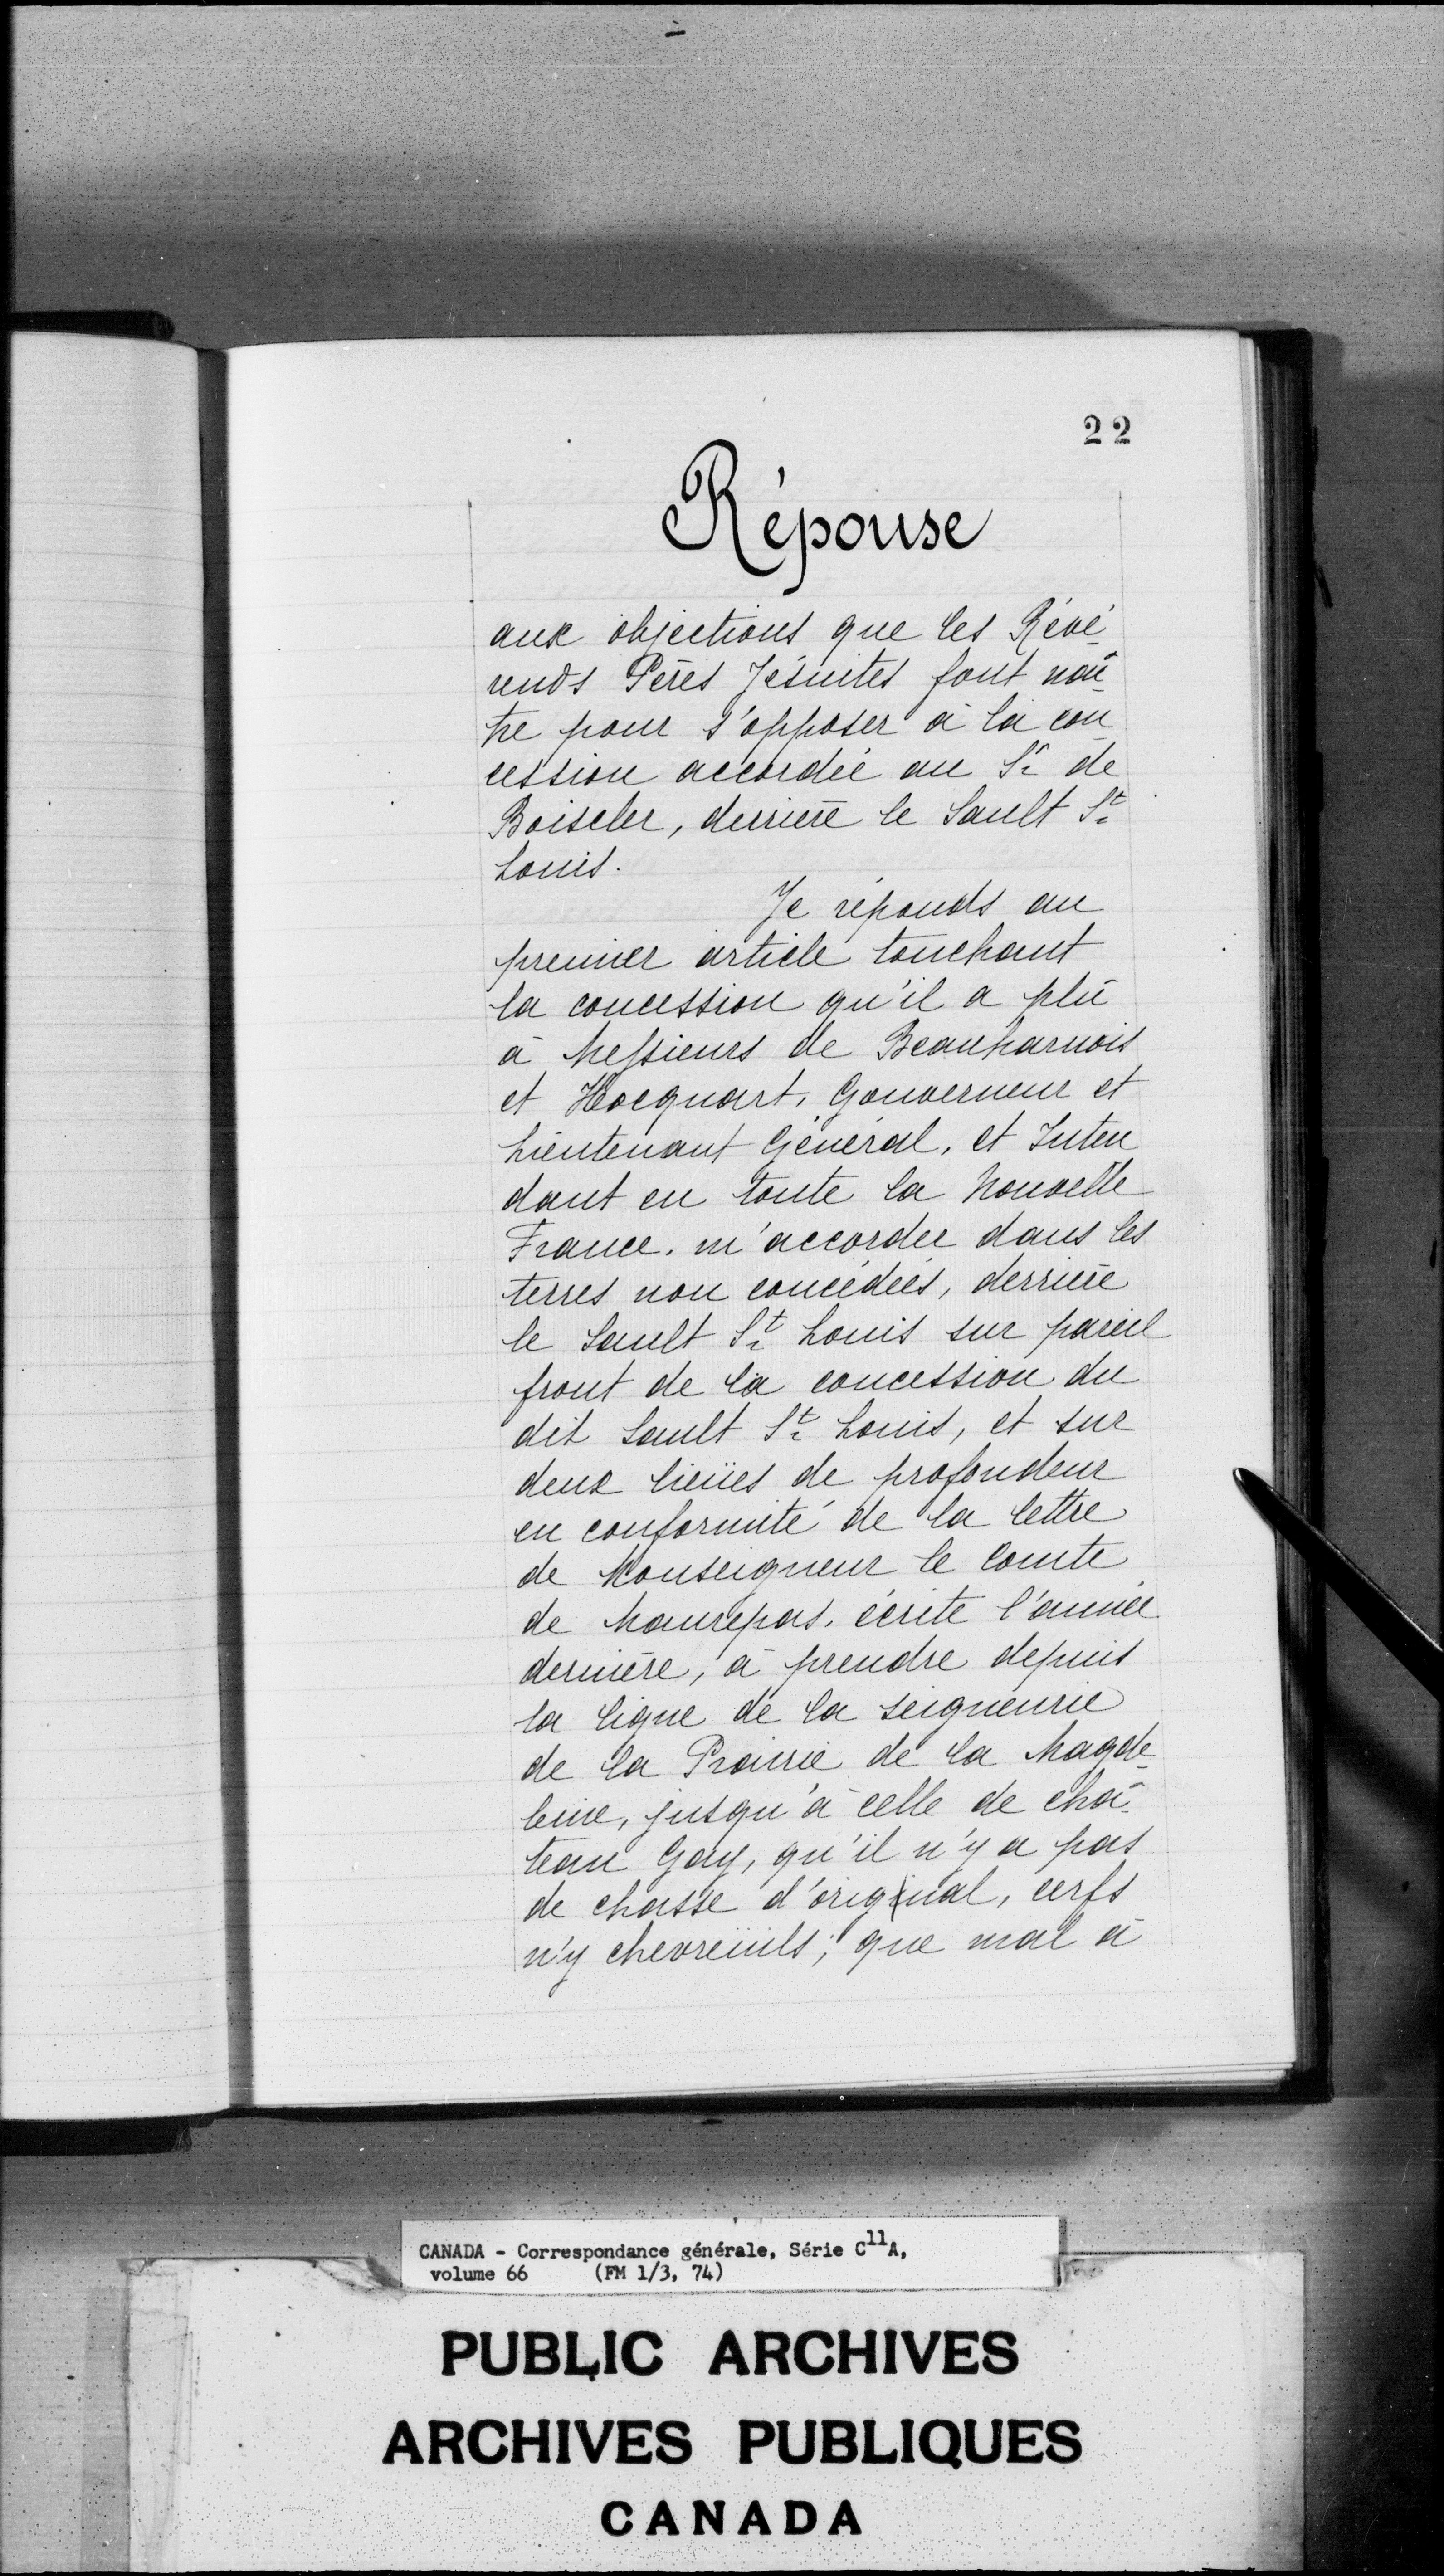 22
Réponse
aux objections que les Révé-
rends Pères Jésuites font naî-
tre pour s'opposer à la con
cession accordée au Sr de
Boiscler, derrière le Sault St
Louis.
Je réponds au
premier article touchant
la concession qu'il a plû
à Messieurs de Beauharnois
et Hocquart, Gouverneur et
Lieutenant Général, et Inten
dant en toute la Nouvelle
France. m'accorder dans les
terres non concédées, derrière
le Sault St Louis sur pareil
front de la concession du
dit Sault St Louis, et sur
deux lieües de profondeur
en conformité de la lettre
de Monseigneur le Comte
de Maurepas. écrite l'année
dernière, à prendre depuis
la ligne de la seigneurie
de la Prairie de la Magde-
leine, jusqu'à celle de châ-
teau Gay, qu'il n'y a pas
de chasse d'original, cerfs
n'y chevreüils; que mal à
CANADA - Correspondance générale, Série C11A,
volume 66 (FM 1/3, 74)
PUBLIC ARCHIVES
ARCHIVES PUBLIQUES
CANADA